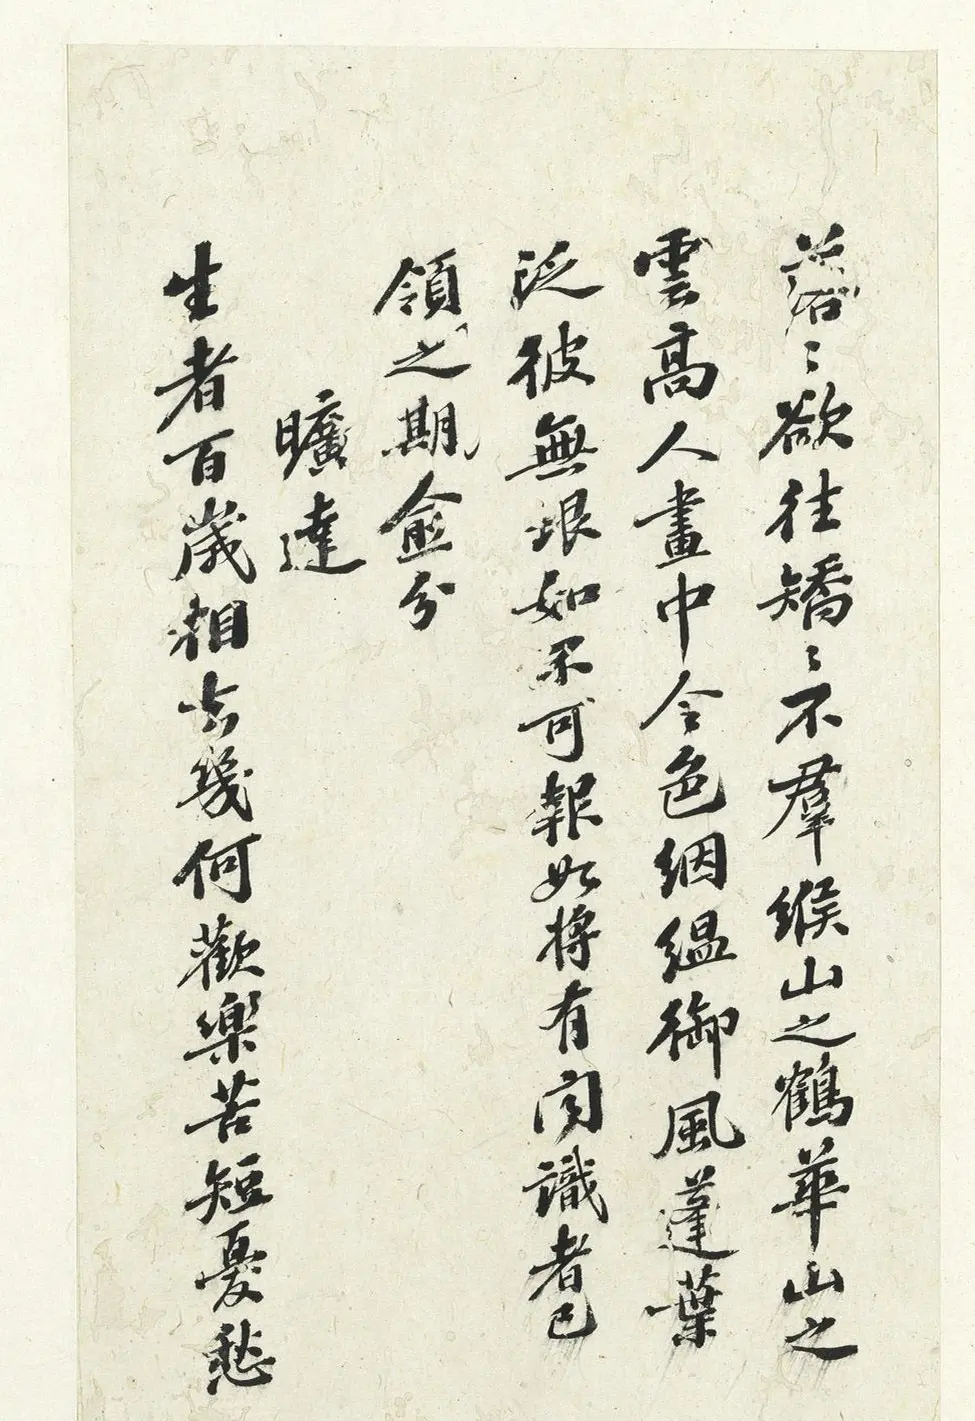 落〻欲往矯〻不羣緱山之鶴華山之
雲高人畫中令色絪緼御風蓬葉
泛彼無垠如不可執如將有聞識者已
領之期愈分
曠達
生者百歲相去幾何歡樂苦短憂愁